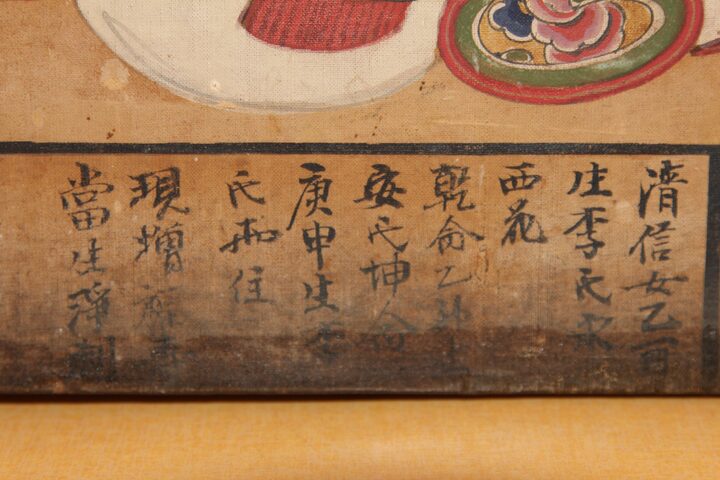 清信女乙酉
生李氏永
西花
乾命乙卯生
安氏坤命
庚申生李
氏兩住
現增福壽
當生淨刹